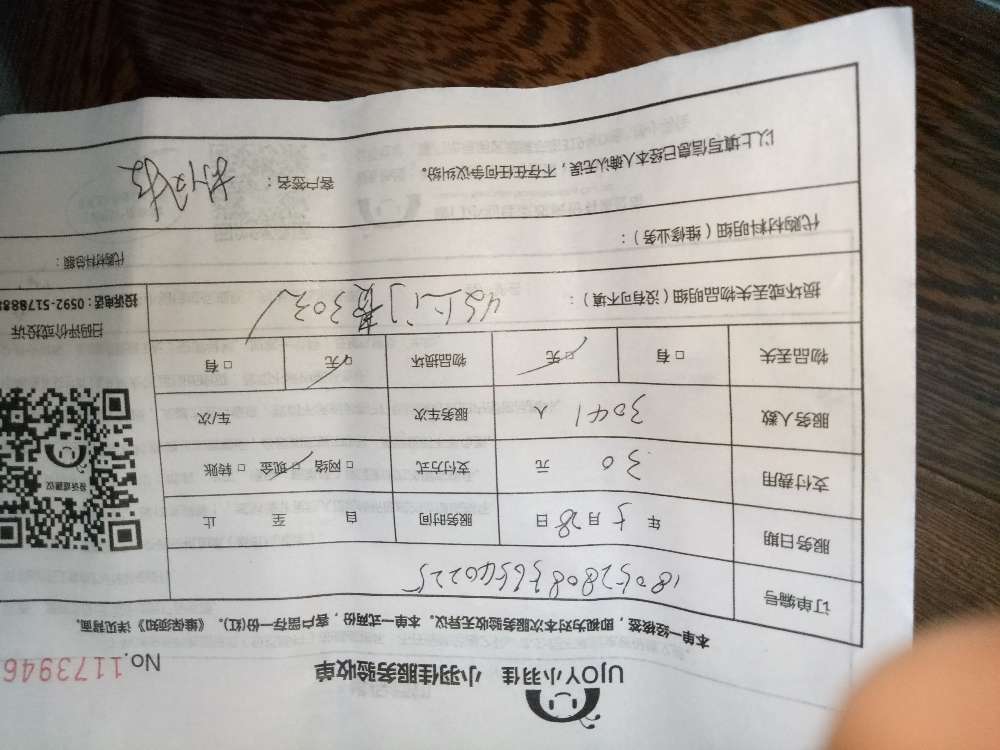 UJOY小羽佳 小羽佳服务验收单
No.1173946
本单一经核签，即视为对本次服务验收无异议。本单一式两份，客户留存一份(红)。《维保须知》详见背面。
订单编号
服务日期 年 5 月 28 日 服务时间 自 至 止
支付费用 30 元 支付方式 □ 网络 □ 现金 □ 转账
服务人数 3041 人 服务车次 车/次
物品丢失 □ 有 □ 无 物品损坏 □ 无 □ 有
投诉或建议
扫码评价或投诉
投诉电话：0592-517888
损坏或丢失物品明细（没有可不填）： 收上门费30元
代购材料明细（维修业务）：
代购材料总额：
以上填写信息已经本人确认无误，不存在任何争议纠纷。 客户签名：